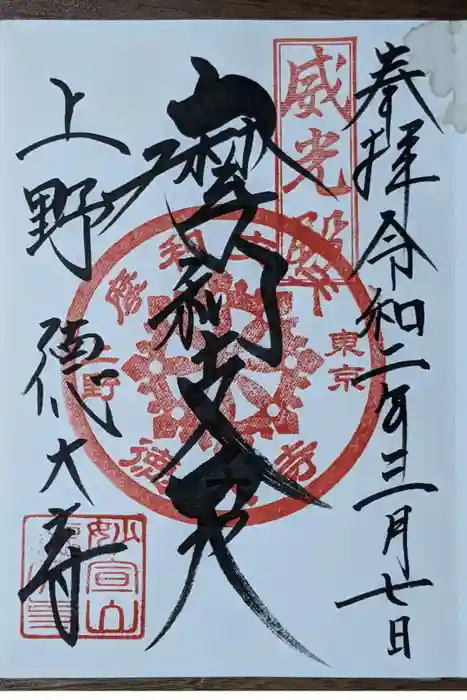 奉拝 令和二年三月七日
威光殿
摩利支天
上野 徳大寺
東京
上野